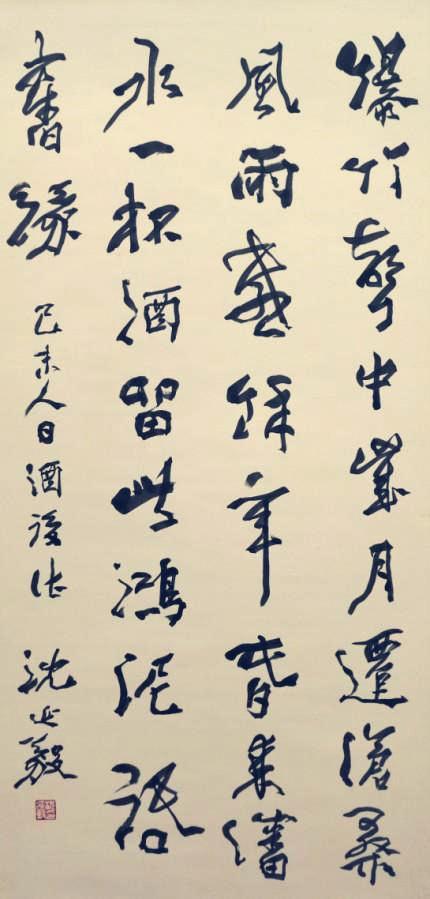 爆竹聲中歲月遷滄桑
風雨感餘年旾來瀋
水一杯酒留此鴻泥話
舊緣 己未人日酒後作 沈延毅